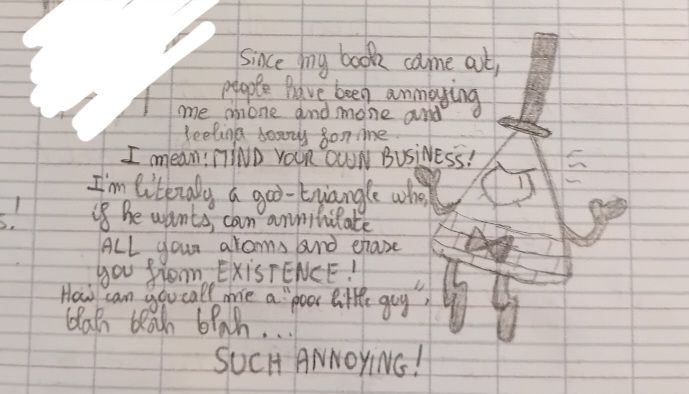 Since my book came out,
people have been annoying
me more and more and
feeling sorry for me.
I mean: MIND YOUR OWN BUSINESS!
I'm literaly a god-triangle who,
if he wants, can annihilate
s!
ALL your atoms and erase
you from EXISTENCE!
How can you call me a "poor little guy",
blah blah blah...
SUCH ANNOYING!